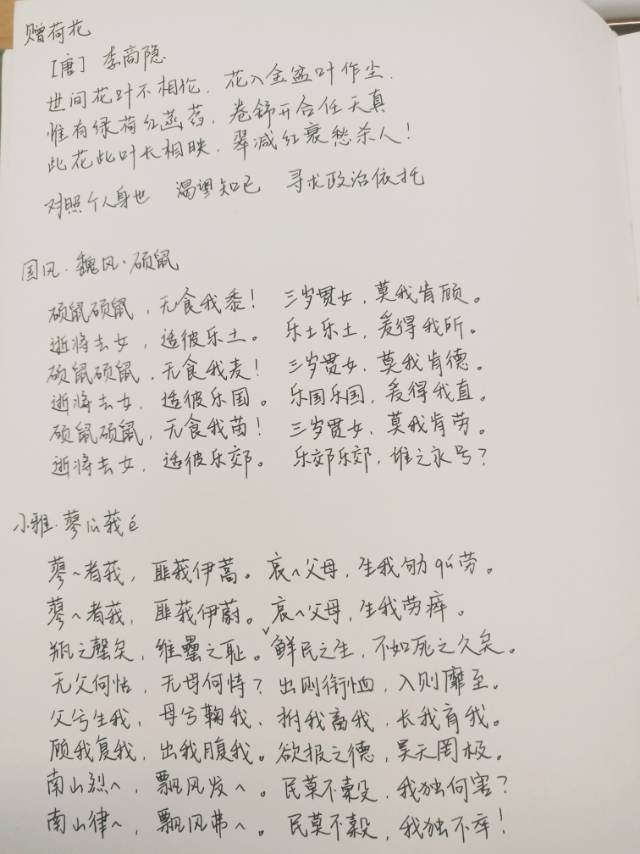 赠荷花
[唐] 李商隐
世间花叶不相伦，花入金盆叶作尘．
惟有绿荷红菡萏，卷舒开合任天真
此花此叶长相映，翠减红衰愁杀人！
对照个人身世 渴望知己 寻求政治依托
国风·魏风·硕鼠
硕鼠硕鼠，无食我黍！ 三岁贯女，莫我肯顾。
逝将去女，适彼乐土。 乐土乐土，爰得我所。
硕鼠硕鼠，无食我麦！ 三岁贯女，莫我肯德。
逝将去女，适彼乐国。 乐国乐国，爰得我直。
硕鼠硕鼠，无食我苗！ 三岁贯女，莫我肯劳。
逝将去女，适彼乐郊。 乐郊乐郊，谁之永号？
小雅·蓼lù莪é
蓼ヘ者莪，匪莪伊蒿。哀ヘ父母，生我劬qú劳。
蓼ヘ者莪，匪莪伊蔚。哀ヘ父母，生我劳瘁。
瓶之罄矣，维罍之耻。鲜民之生，不如死之久矣。
无父何怙，无母何恃？出则衔恤，入则靡至。
父兮生我，母兮鞠我．拊我畜我．长我育我。
顾我复我，出我腹我。欲报之德，昊天罔极。
南山烈ヘ，飘风发ヘ。民莫不穀，我独何害？
南山律ヘ，飘风弗ヘ。民莫不穀，我独不卒！